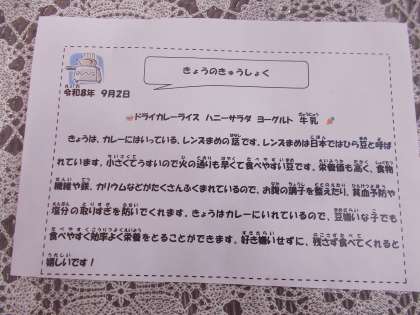 きょうのきゅうしょく
令和8年 9月2日
ドライカレーライス ハニーサラダ ヨーグルト 牛乳
きょうは、カレーにはいっている、レンズまめの話です。レンズまめは日本ではひら豆と呼ば
れています。小さくてうすいので火の通りも早くて食べやすい豆です。栄養価も高く、食物
繊維や鉄、カリウムなどがたくさんふくまれているので、お腹の調子を整えたり、貧血予防や
塩分の取りすぎを防いでくれます。きょうはカレーにいれているので、豆嫌いな子でも
食べやすく効率よく栄養をとることができます。好き嫌いせずに、残さず食べてくれると
嬉しいです！